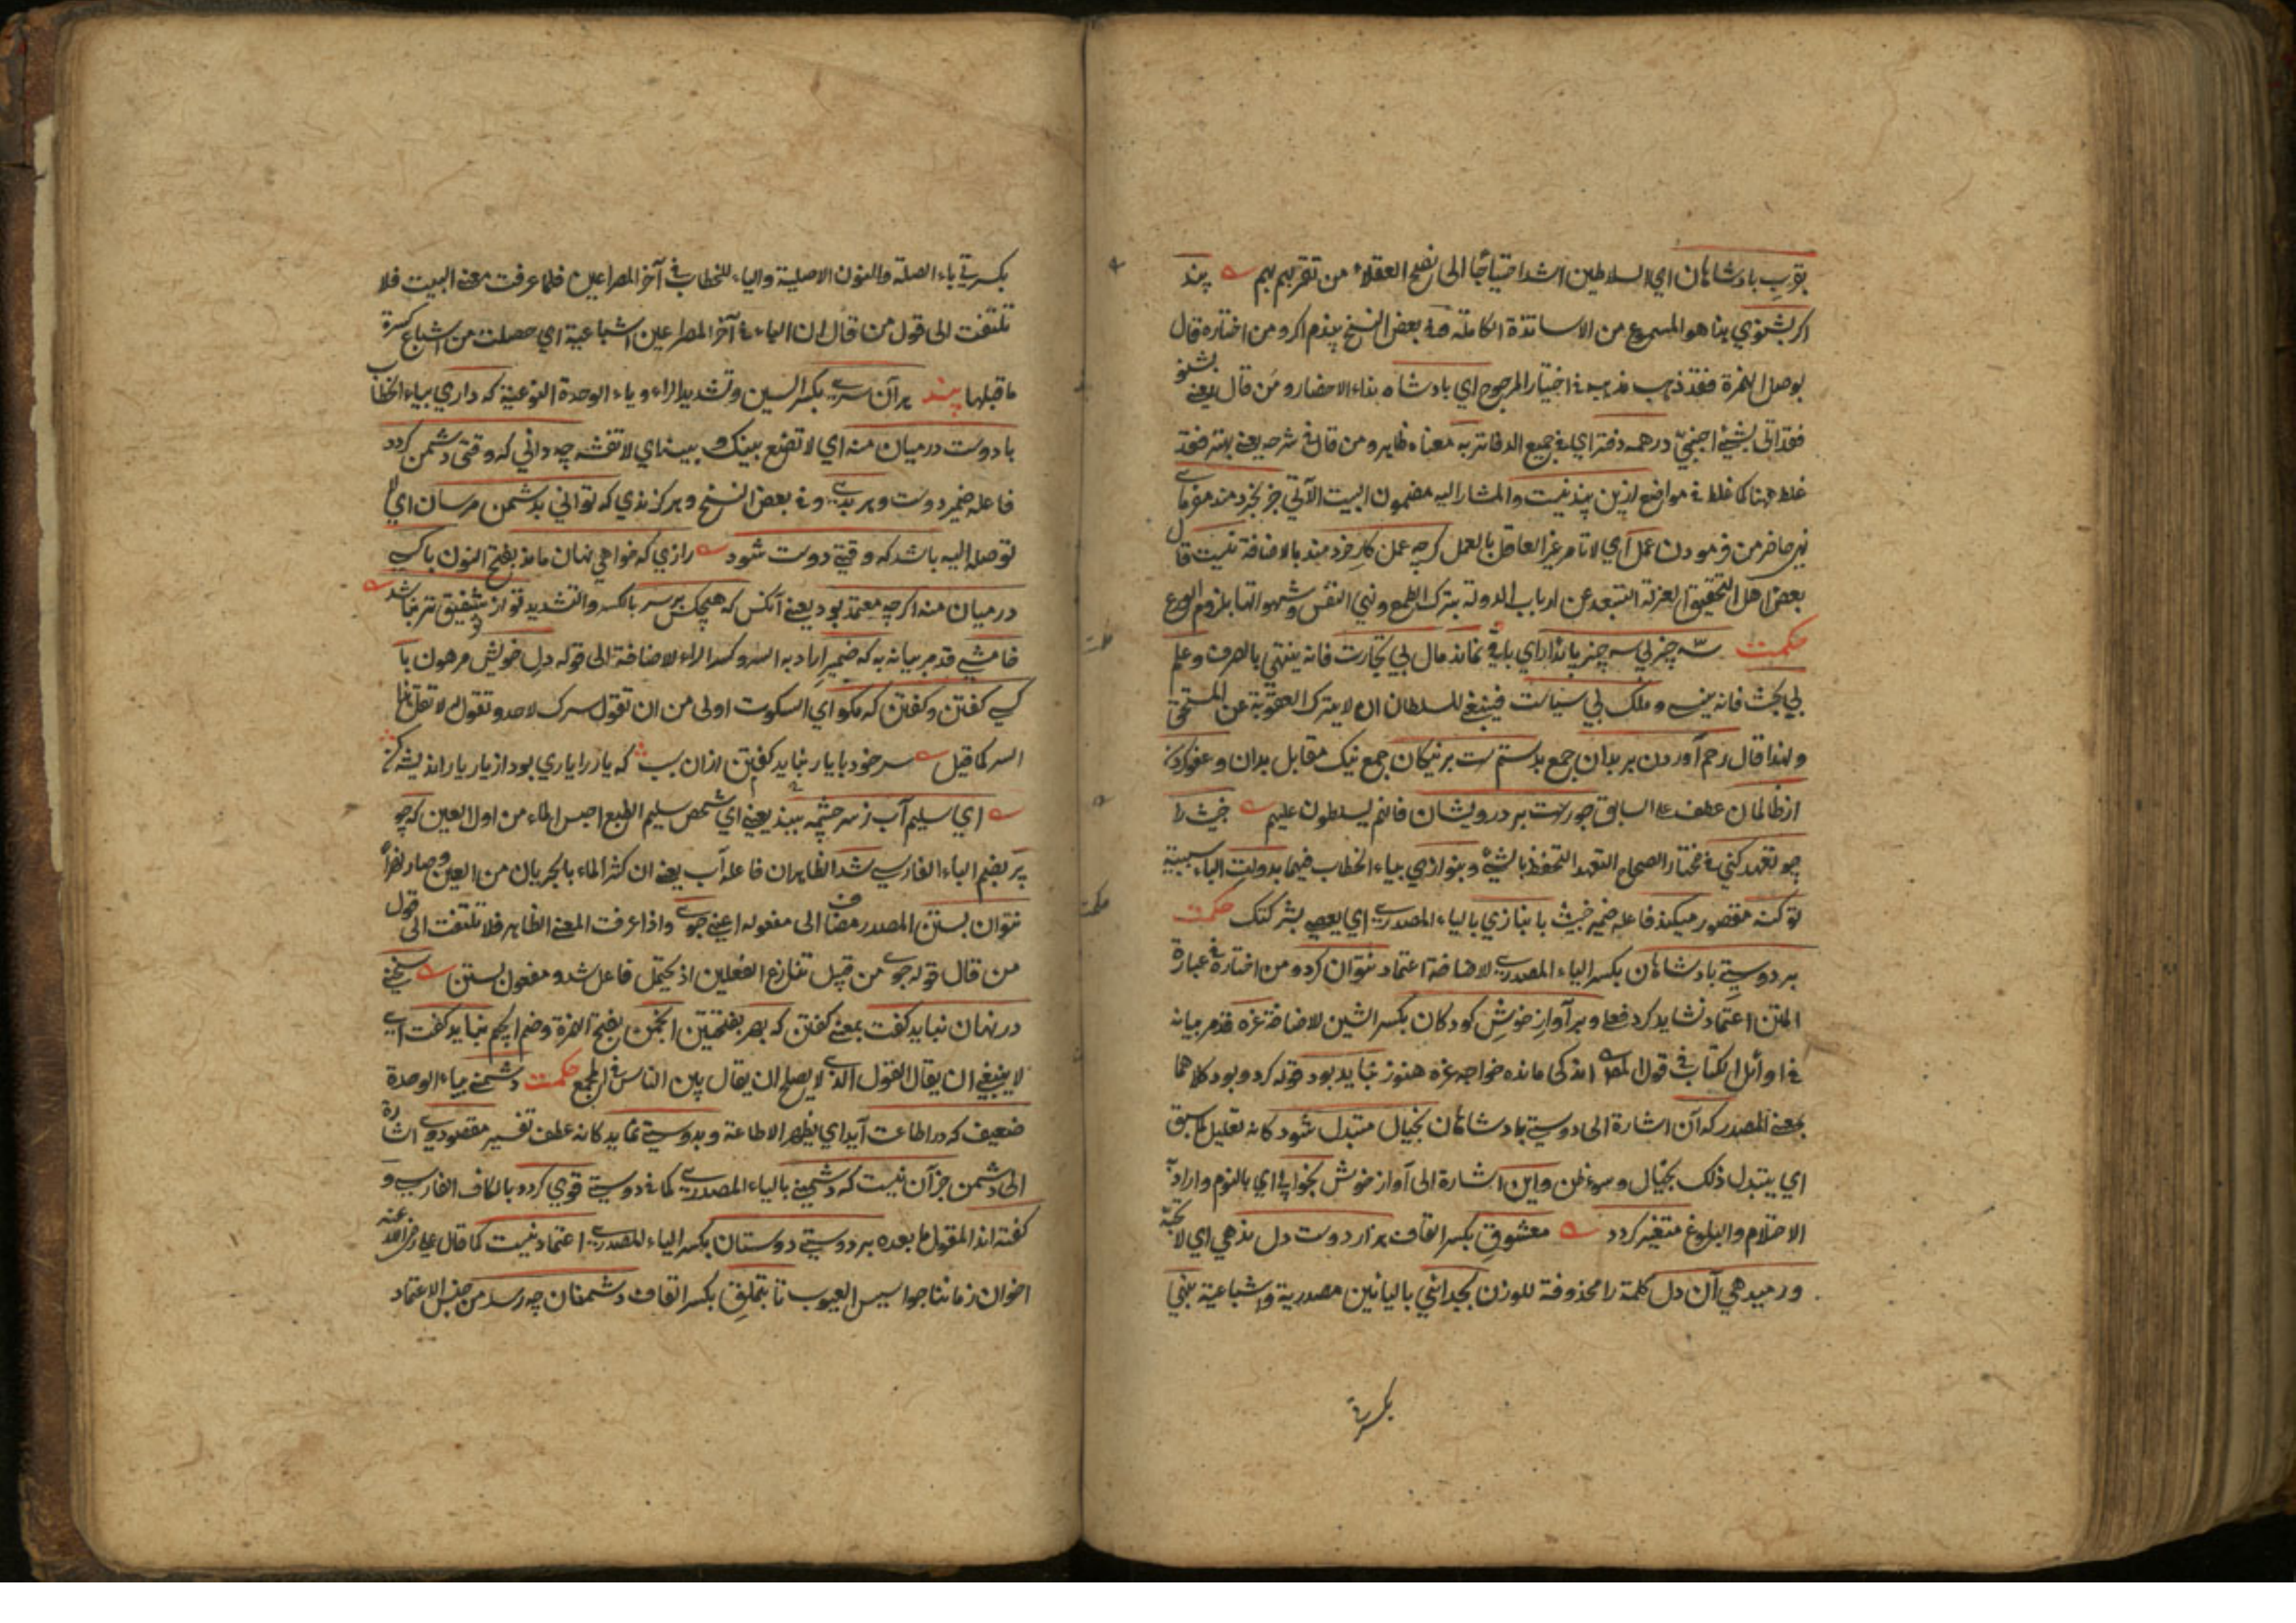 بقرب بادشاهان اي السلاطين اشد احتياجا الى نصح العقلاء من تقربهم بهم پند
اكر بشنوي بنا هو المسموع من الاساتذة الكاملة وفي بعض النسخ پندم اكر ومن اختاره قال
بوصل الهمزة فقد ذهب مذهب في اختيار المرجوح اي بادشاه بنداء الاحضار ومن قال يعني بشنو
فقد اتى بشيء اجنبي در همه دفتر اي في جميع الدفاتر به معناه ظاهر ومن قال في شرحه يعني بهتر فقد
غلط ههنا كما غلط في مواضع ازين پند نيست والمشار اليه مضمون البيت الآتي جز بخردمند مفرماي
نهي حاضر من فرمودن عمل اي لا تامر غير العاقل بالعمل كرچه عمل كار خردمند بالاضافة نيست قال
بعض اهل التحقيق العزلة التبعد عن ارباب الدولة بترك الطمع ونهي النفس وشهواتها بلزوم الورع
حكمت سه چيز بي سه چيز پايدار اي باق نماند مال بي تجارت فانه ينتهي بالصرف وعلم
بي بحث فانه ينسى وملك بي سياست فينبغي للسلطان ان لا يترك العقوبة عن المستحق
ولهذا قال رحم آوردن بر بدان جمع بد ستمست بر نيكان جمع نيك مقابل بدان وعفو كردن
از ظالمان عطف على السابق جورست بر درويشان فانهم يسلطون عليهم خبيث را
چو تعهد كني في مختار الصحاح التعهد التحفظ بالشيء وبنوازي بياء الخطاب فيهما بدولت الباء سببية
تو كنه مقصور ميكند فاعله ضمير خبيث با نبازي بالياء المصدري اي يعصي بشركتك حكمت
بر دوستي بادشاهان بكسر الياء المصدري للاضافة اعتماد نتوان كرد ومن اختار في عبارة
المتن اعتماد نشايد كرد فعلى وبر آواز خوش كودكان بكسر الشين للاضافة غره قد مر بيانه
في اوائل الكتاب في قول المصـ اندكي مانده خواجه غره هنوز نبايد بود قوله كرد وبود كلاهما
بمعنى المصدر كه آن اشارة الى دوستي بادشاهان بخيال متبدل شود كانه تعليل لما سبق
اي يتبدل ذلك بخيال وسوء ظن واين اشارة الى آواز خوش بخوابي اي بالنوم واراد به
الاحتلام والبلوغ متغير كردد معشوق بكسر القاف هزار دوست دل ندهي اي لا تحبه
ور ميدهي آن دل كلمة را محذوفة للوزن بجدائي باليائين مصدرية واشباعية بنهي
بكسرتي
بكسرتي باء الصلة والنون الاصلية والياء للخطاب في آخر المصراعين فلما عرفت معنى البيت فلا
تلتفت الى قول من قال ان الياء في آخر المصراعين اشباعية اي حصلت من اشباع كسرة
ما قبلها پند هر آن سري بكسر السين وتشديد الراء وياء الوحدة النوعية كه داري بياء الخطاب
با دوست درميان منه اي لا تضع بينك وبينه اي لا تفشه چه داني كه وقتي دشمن كردد
فاعله ضمير دوست وهر بدي وفي بعض النسخ وهر كزندي كه تواني بدشمن مرسان اي لا
توصله اليه باشد كه وقتي دوست شود رازي كه خواهي نهان ماند بفتح النون با كسي
درميان منه اكرچه معتمد بود يعني آنكس كه هيچكس بر سر بالكسر والتشديد تو از تو شفيق تر نباشد
خامشي قد مر بيانه به كه ضمير اراد به السر وكسر الراء للاضافة الى قوله دل خويش مرهون با
كسي كفتن وكفتن كه مكو اي السكوت اولى من ان تقول سرك لاحد وتقول له لا تقل هذا
السر كما قيل سر خود با يار نبايد كفتن ازان بيت كه يار را ياري بود از يار يار انديشه كن
اي سليم آب ز سر چشمه ببند يعني اي شخص سليم الطبع احبس الماء من اول العين كه چو
پر بضم الباء الفارسي شد الظاهر ان فاعله آب يعني ان كثر الماء بالجريان من العين وصار نهرا
نتوان بستن المصدر مضاف الى مفعوله اعني جوي واذا عرفت المعنى الظاهر فلا تلتفت الى قول
من قال قوله جوي من قبيل تنازع الفعلين اذ يحتمل فاعل شد ومفعول بستن سخني
در نهان نبايد كفت بمعنى كفتن كه بهر بفتحتين انجمن بفتح الهمزة وضم الجيم نبايد كفت اي
لا ينبغي ان يقال القول الذي لا يصلح ان يقال بين الناس في المجمع حكمت دشمني بياء الوحدة
ضعيف كه در اطاعت آيد اي يظهر الاطاعة وبدوستي نمايد كانه عطف تفسير مقصود وي اشارة
الى دشمن جز آن نيست كه دشمني بالياء المصدري كما في دوستي قوي كردد بالكاف الفارسي و
كفته اند المقول ما بعده بر دوستي دوستان بكسر الياء المصدري اعتماد نيست كما قال علي رضي الله عنه
اخوان زماننا جواسيس العيوب تا بتملق بكسر القاف دشمنان چه رسد من جنس الاعتماد